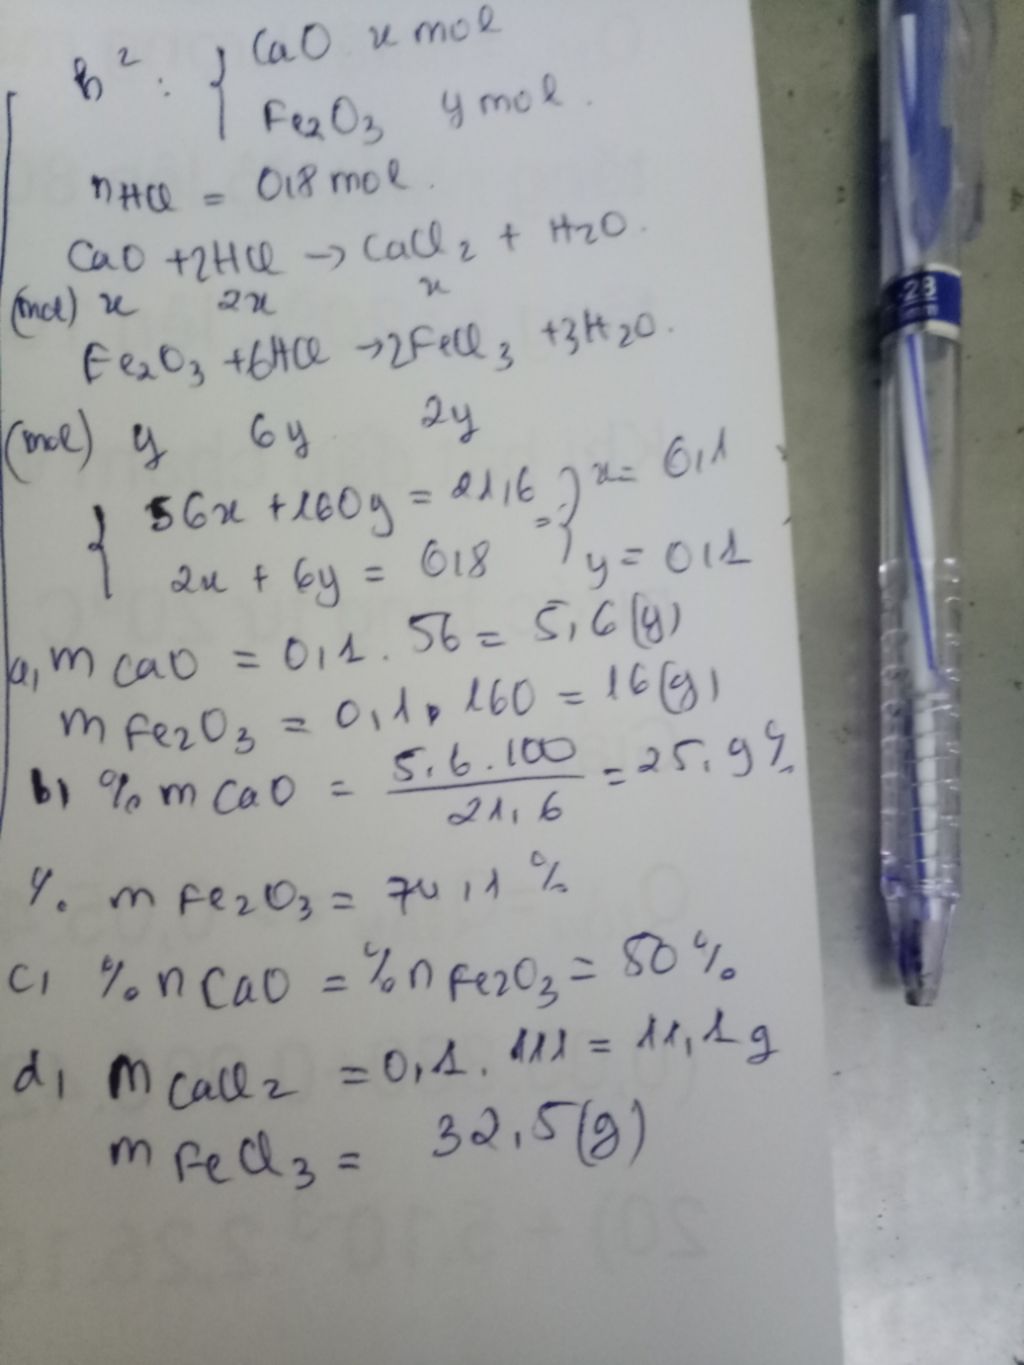 h²: { CaO x mol
Fe2O3 y mol.
nHCl = 0,8 mol.
CaO + 2HCl → CaCl2 + H2O.
(mol) x 2x x
Fe2O3 + 6HCl → 2FeCl3 + 3H2O.
(mol) y 6y 2y
{ 56x + 160y = 21,6 } x = 0,1
2x + 6y = 0,8 = } y = 0,1
a, mCaO = 0,1 . 56 = 5,6 (g)
mFe2O3 = 0,1 . 160 = 16 (g)
b, %mCaO = 5,6.100 / 21,6 = 25,9%
%mFe2O3 = 74,1%
c, %nCaO = %nFe2O3 = 50%
d, mCaCl2 = 0,1. 111 = 11,1g
mFeCl3 = 32,5(g)